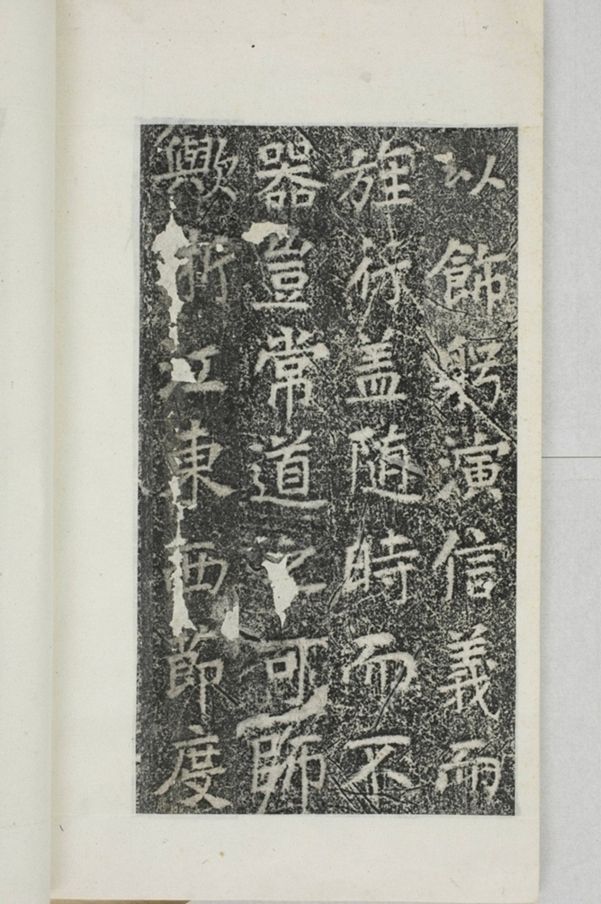 以飾躬演信義而
旌行盖隨時而不
器豈常道之可師
歟浙江東西節度